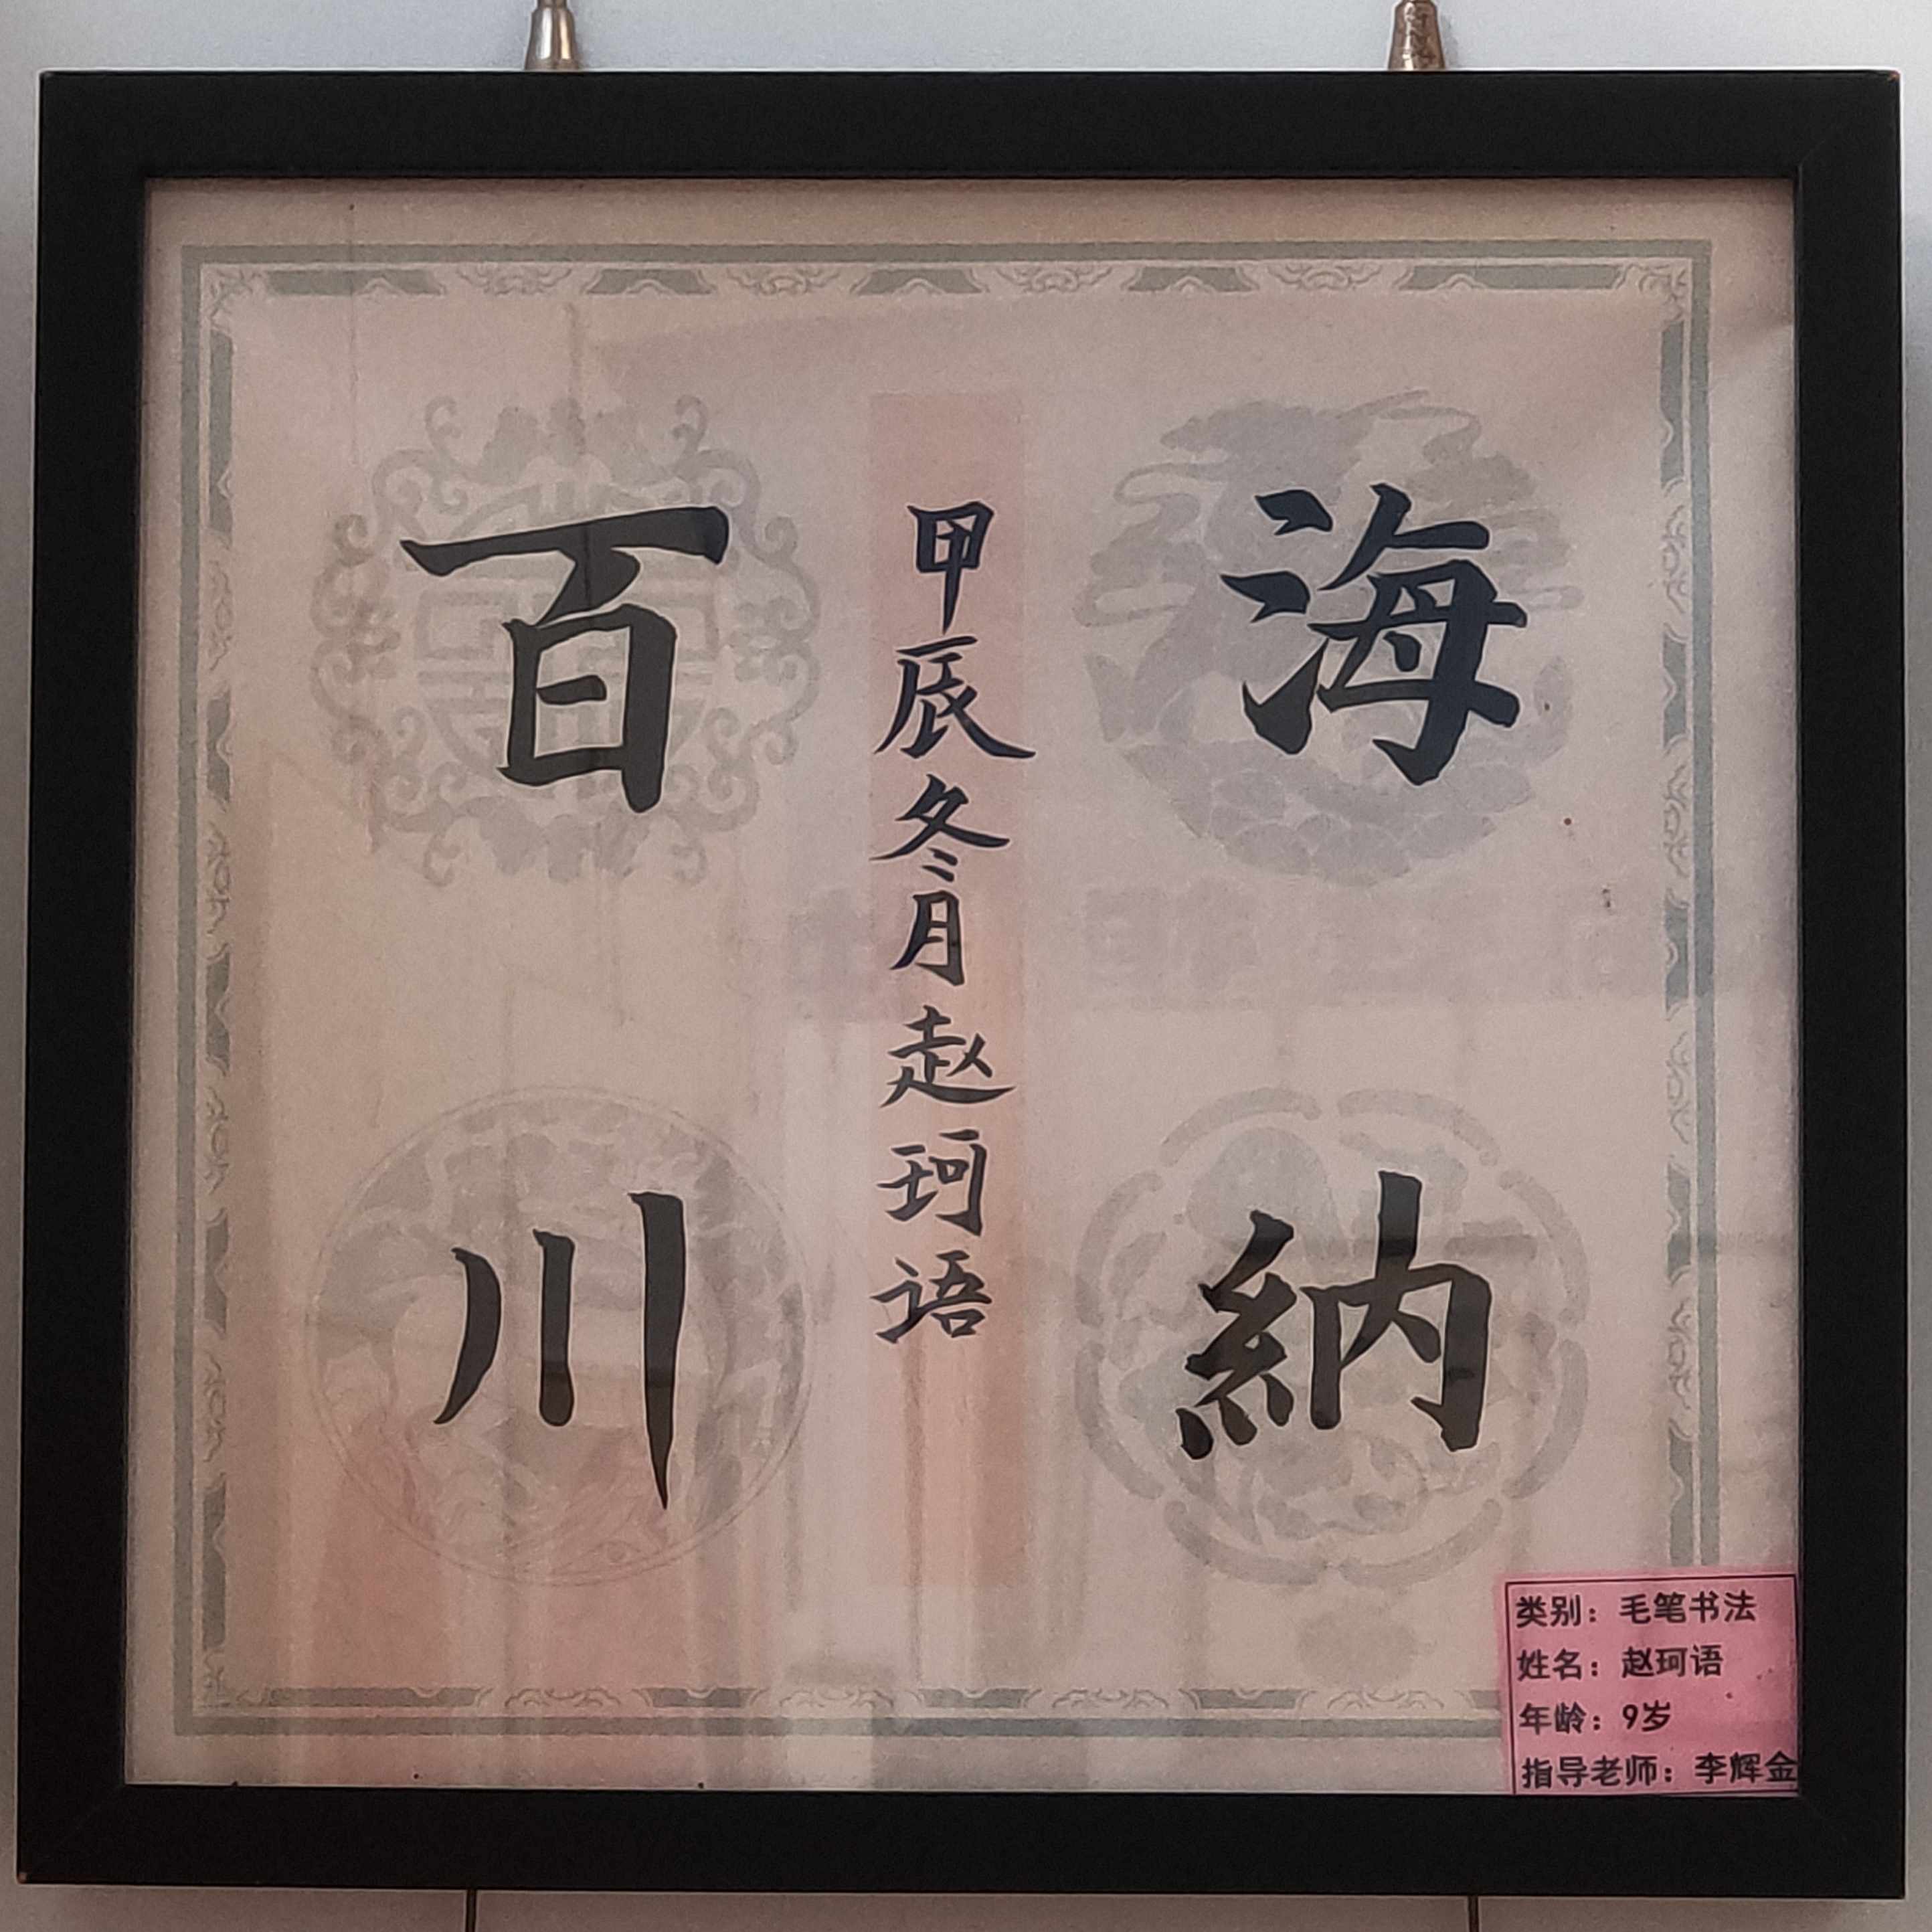 海納
百川
甲辰冬月赵珂语
类别：毛笔书法
姓名：赵珂语
年龄：9岁
指导老师：李辉金